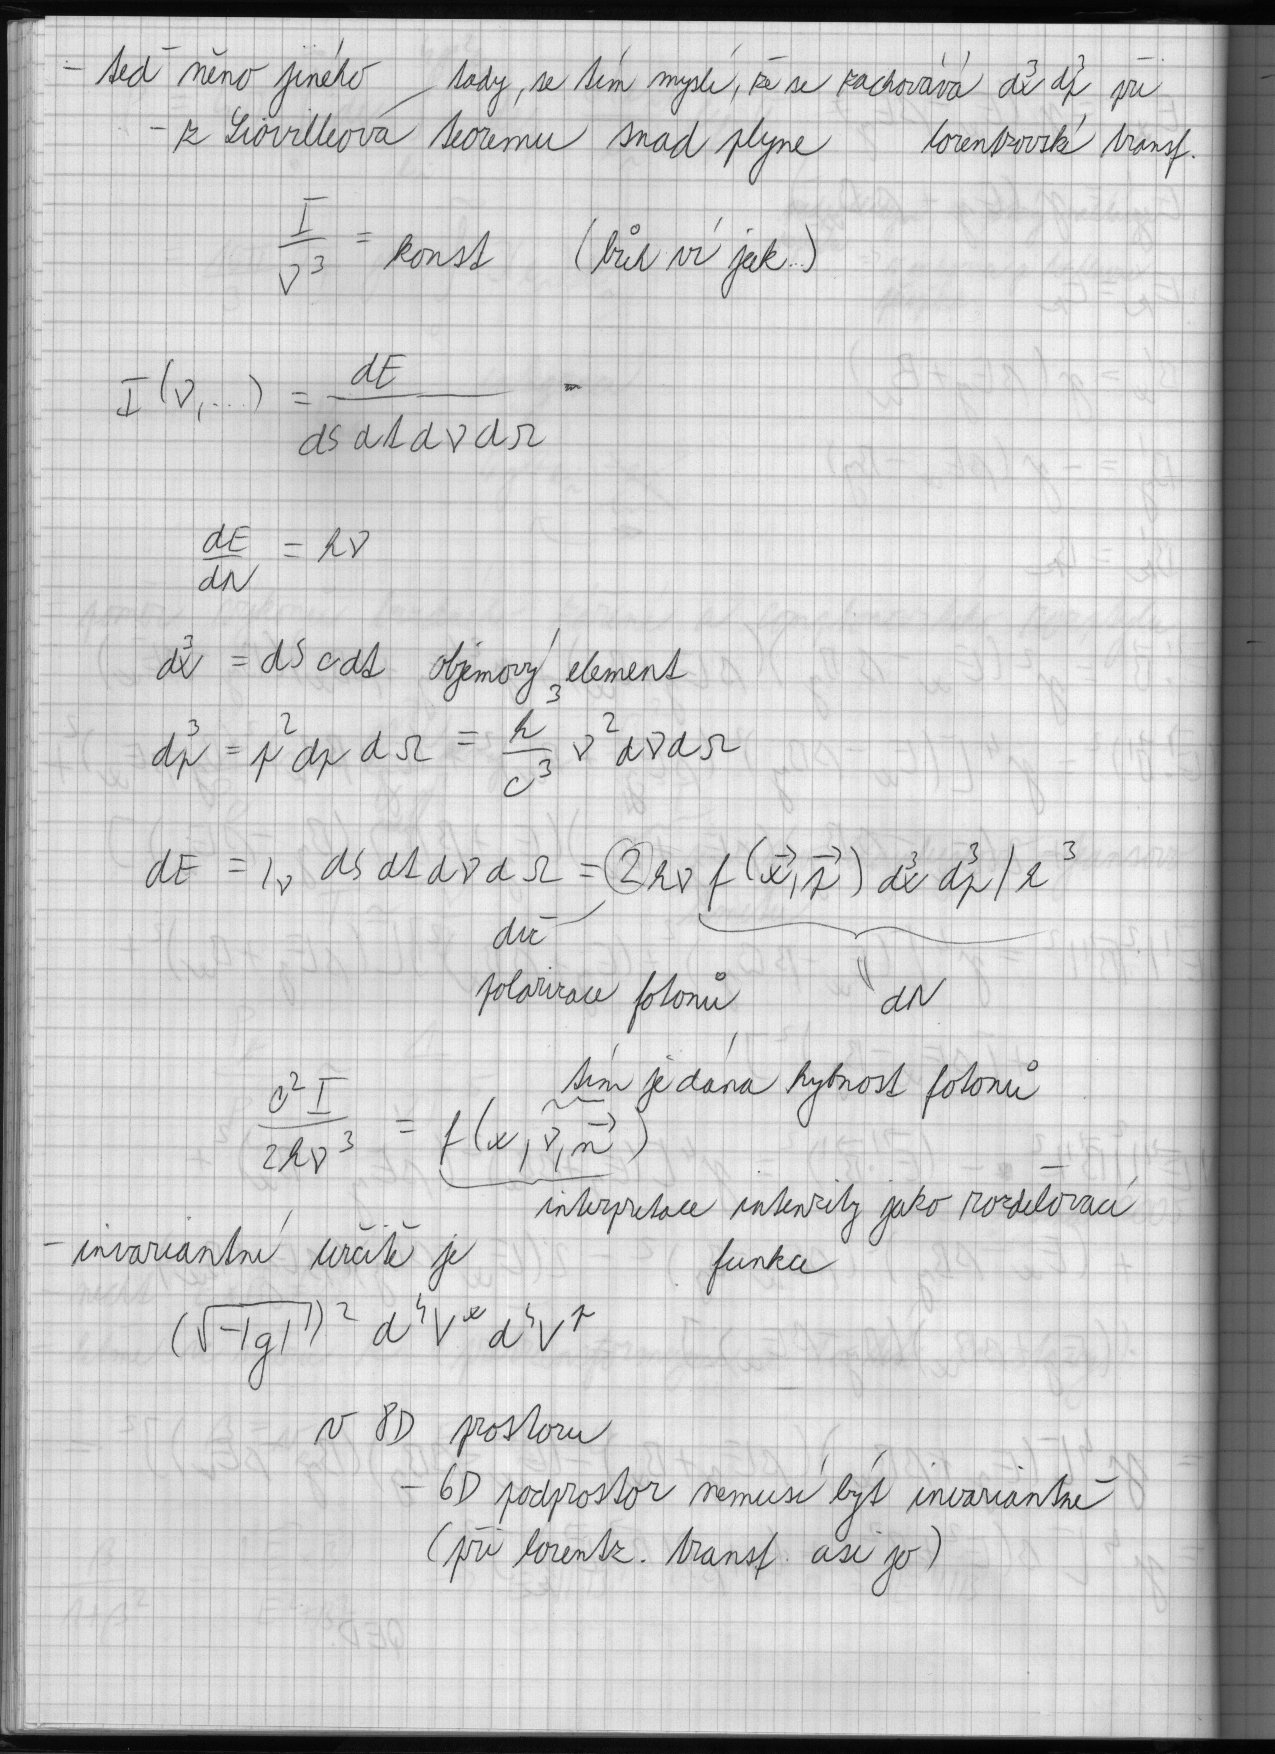 - teď něco jiného
tady, se tím myslí, že se zachovává d³x d³p při
lorentzovské transf.
- z Liovilleova teoremu snad plyne
I/ν³ = konst (bůh ví jak..)
I(ν,...) = dE / dS dt dν dΩ
dE/dN = hν
d³x = dS c dt objemový element
d³p = p² dp dΩ = h³/c³ ν² dν dΩ
dE = Iν dS dt dν dΩ = 2 hν f(x⃗, p⃗) d³x d³p / h³
dvě
polarizace fotonů
dN
tím je dána hybnost fotonů
c² I / 2hν³ = f(x, ν, n⃗)
interpretace intenzity jako rozdělovací
funkce
- invariantní určitě je
(√-|g|)² d⁴Vˣ d⁴Vᵖ
v 8D prostoru
- 6D podprostor nemusí být invariantně
(při lorentz. transf. asi jo)